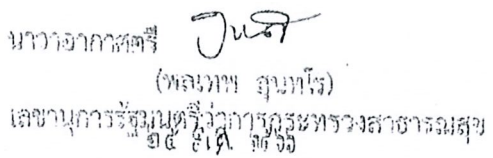 นาวาอากาศตรี
(พลเทพ สุนทโร)
เลขานุการรัฐมนตรีว่าการกระทรวงสาธารณสุข
๒๕